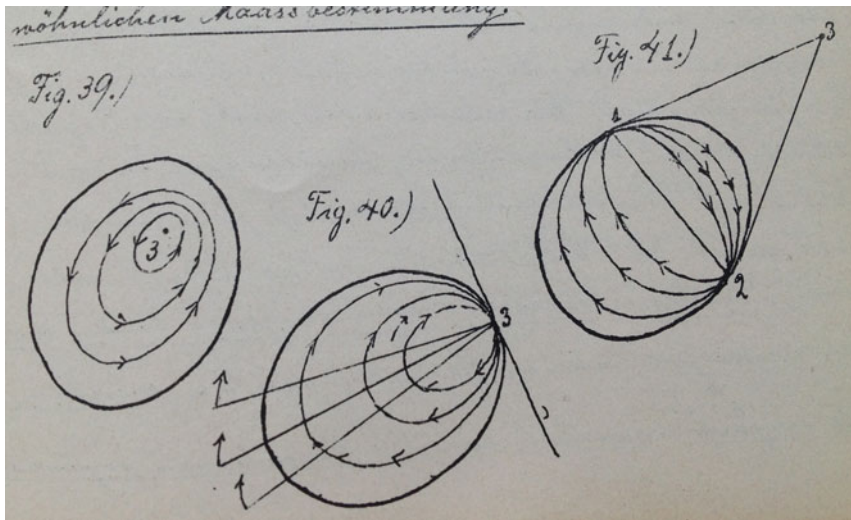 wöhnlichen Maassbestimmung.
Fig. 39.)
Fig. 40.)
Fig. 41.)
3
3
1
2
3